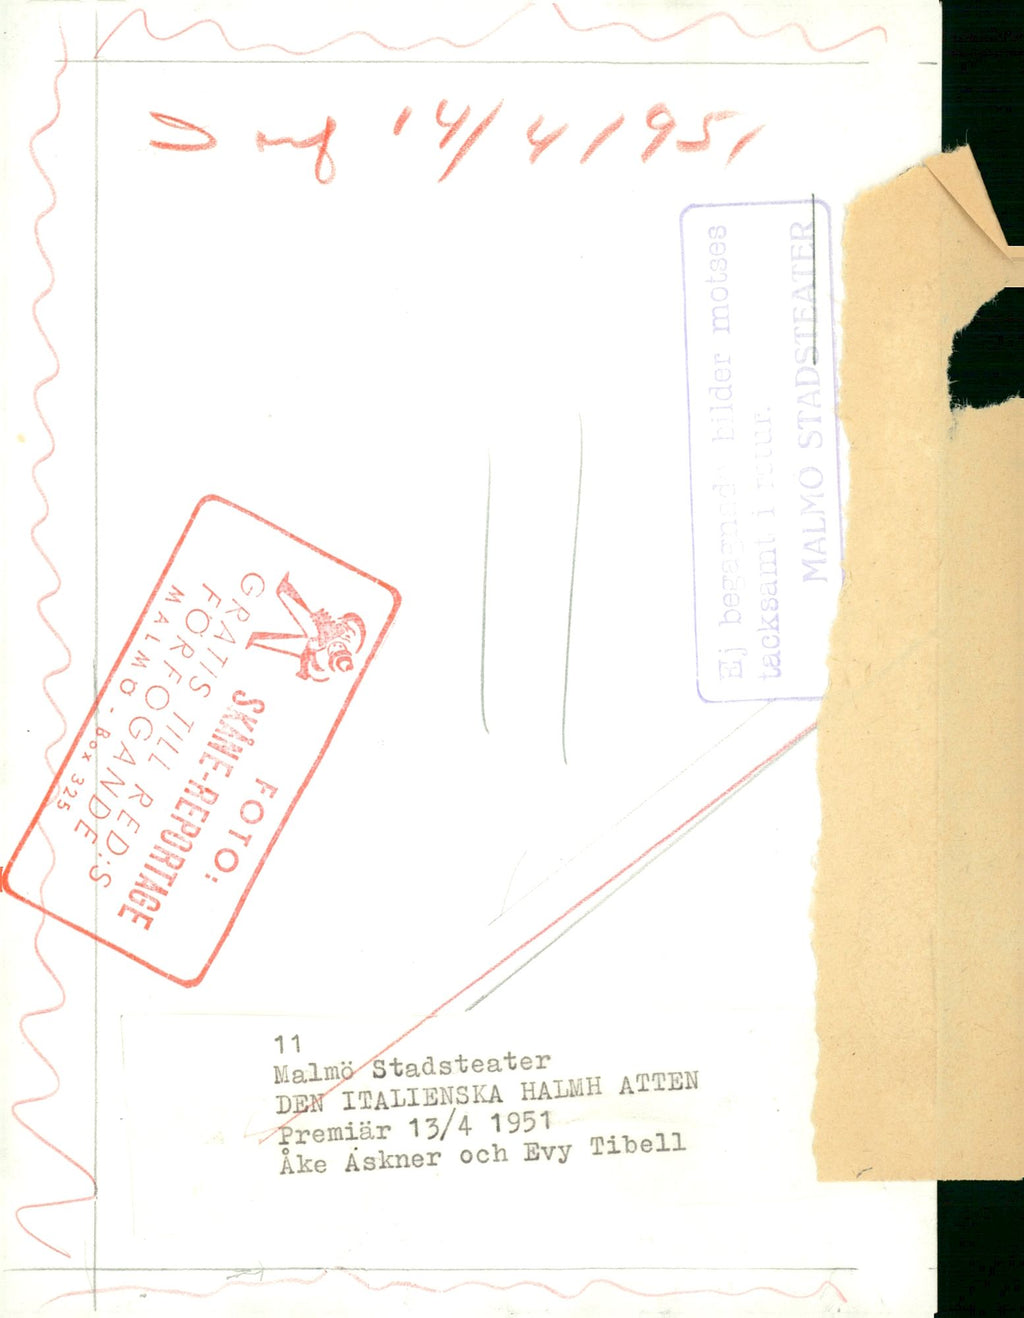 14/4 1951
Ej begagnade bilder motses
tacksamt i retur.
MALMÖ STADSTEATER
FOTO:
SKÅNE-REPORTAGE
GRATIS TILL RED:S
FÖRFOGANDE
MALMÖ - Box 325
11
Malmö Stadsteater
DEN ITALIENSKA HALMH ATTEN
Premiär 13/4 1951
Åke Askner och Evy Tibell